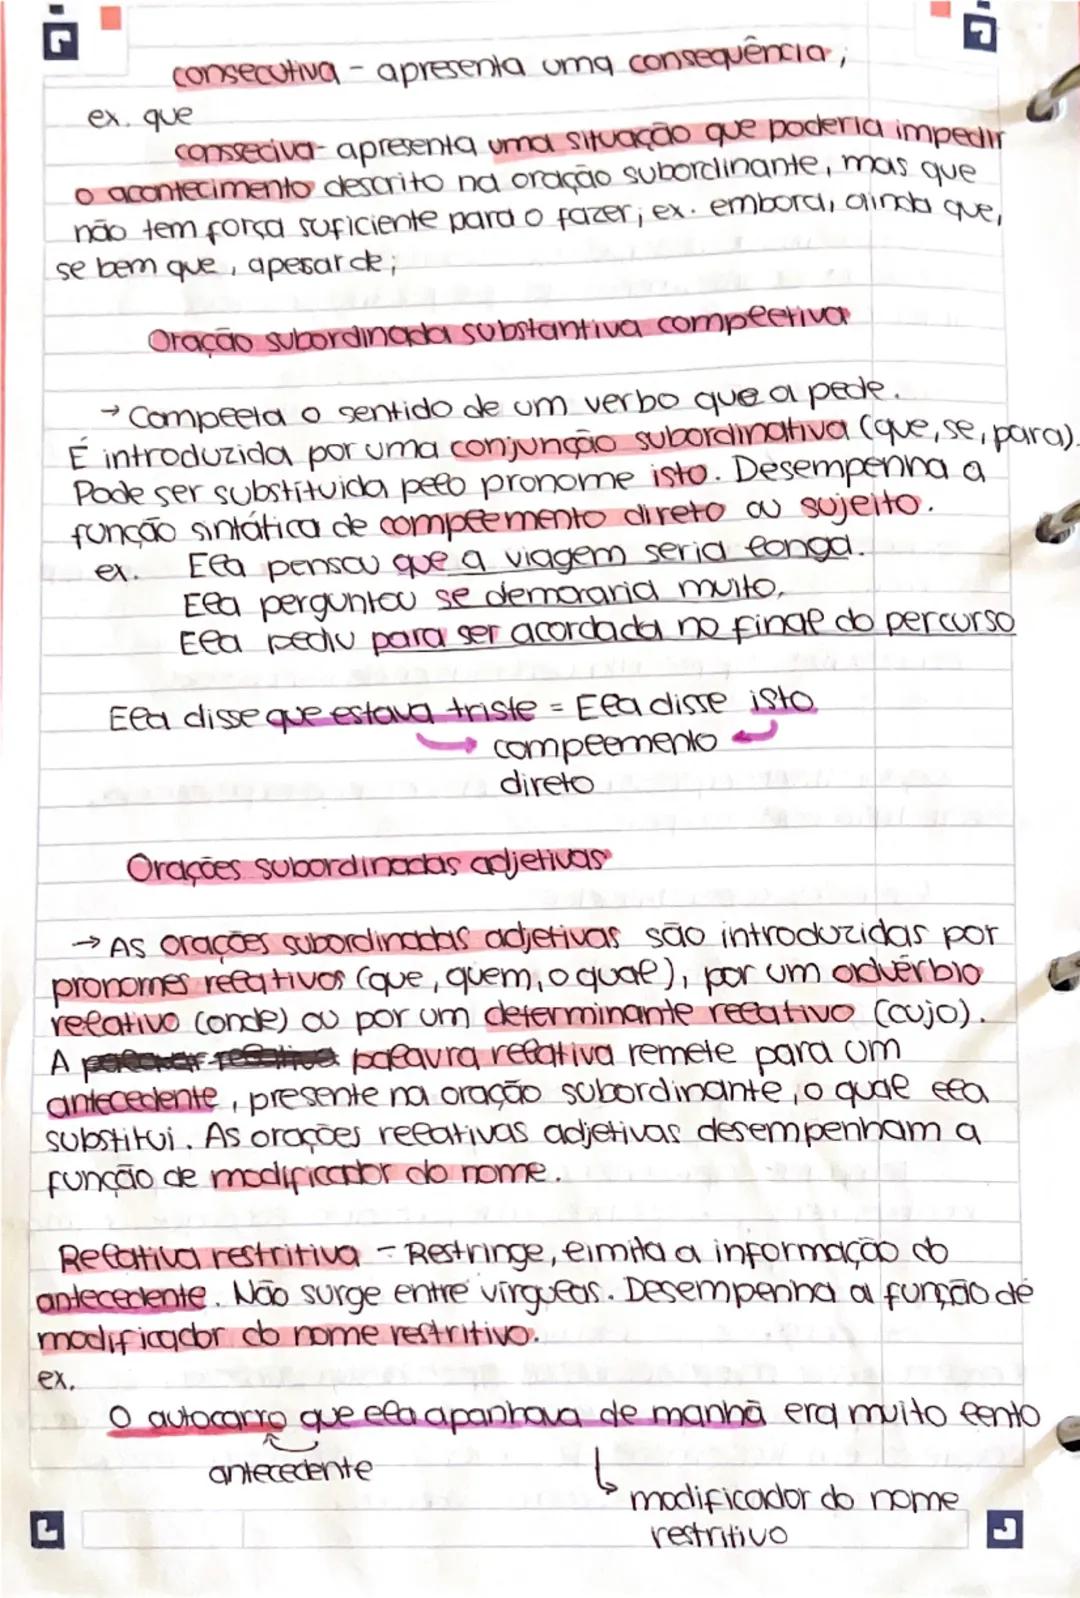 consecutiva - apresenta uma consequência;
ex. que
consseciva- apresenta uma situação que poderia impedir
o acontecimento descrito na oração subordinante, mas que
não tem força suficiente para o fazer; ex. embora, ainda que,
se bem que, apesar de;
Oração subordinada substantiva completiva
→ Completa o sentido de um verbo que a pede.
É introduzida por uma conjunção subordinativa (que, se, para).
Pode ser substituida pelo pronome isto. Desempenha a
função sintática de complemento direto ou sujeito.
ex. Ela pensou que a viagem seria longa.
Ela perguntou se demoraria muito.
Ela pediu para ser acordada no final do percurso
Ela disse que estava triste = Ela disse isto
complemento
direto
Orações subordinadas adjetivas
→ As orações subordinadas adjetivas são introduzidas por
pronomes relativos (que, quem, o qual), por um advérbio
relativo (onde) ou por um determinante relativo (cujo).
A palavra relativa remete para um
antecedente, presente na oração subordinante, o qual ela
substitui. As orações relativas adjetivas desempenham a
função de modificador do nome.
Relativa restritiva - Restringe, limita a informação do
antecedente. Não surge entre vírgulas. Desempenha a função de
modificador do nome restritivo.
ex.
O autocarro que ela apanhava de manhã era muito lento
antecedente
modificador do nome
restritivo